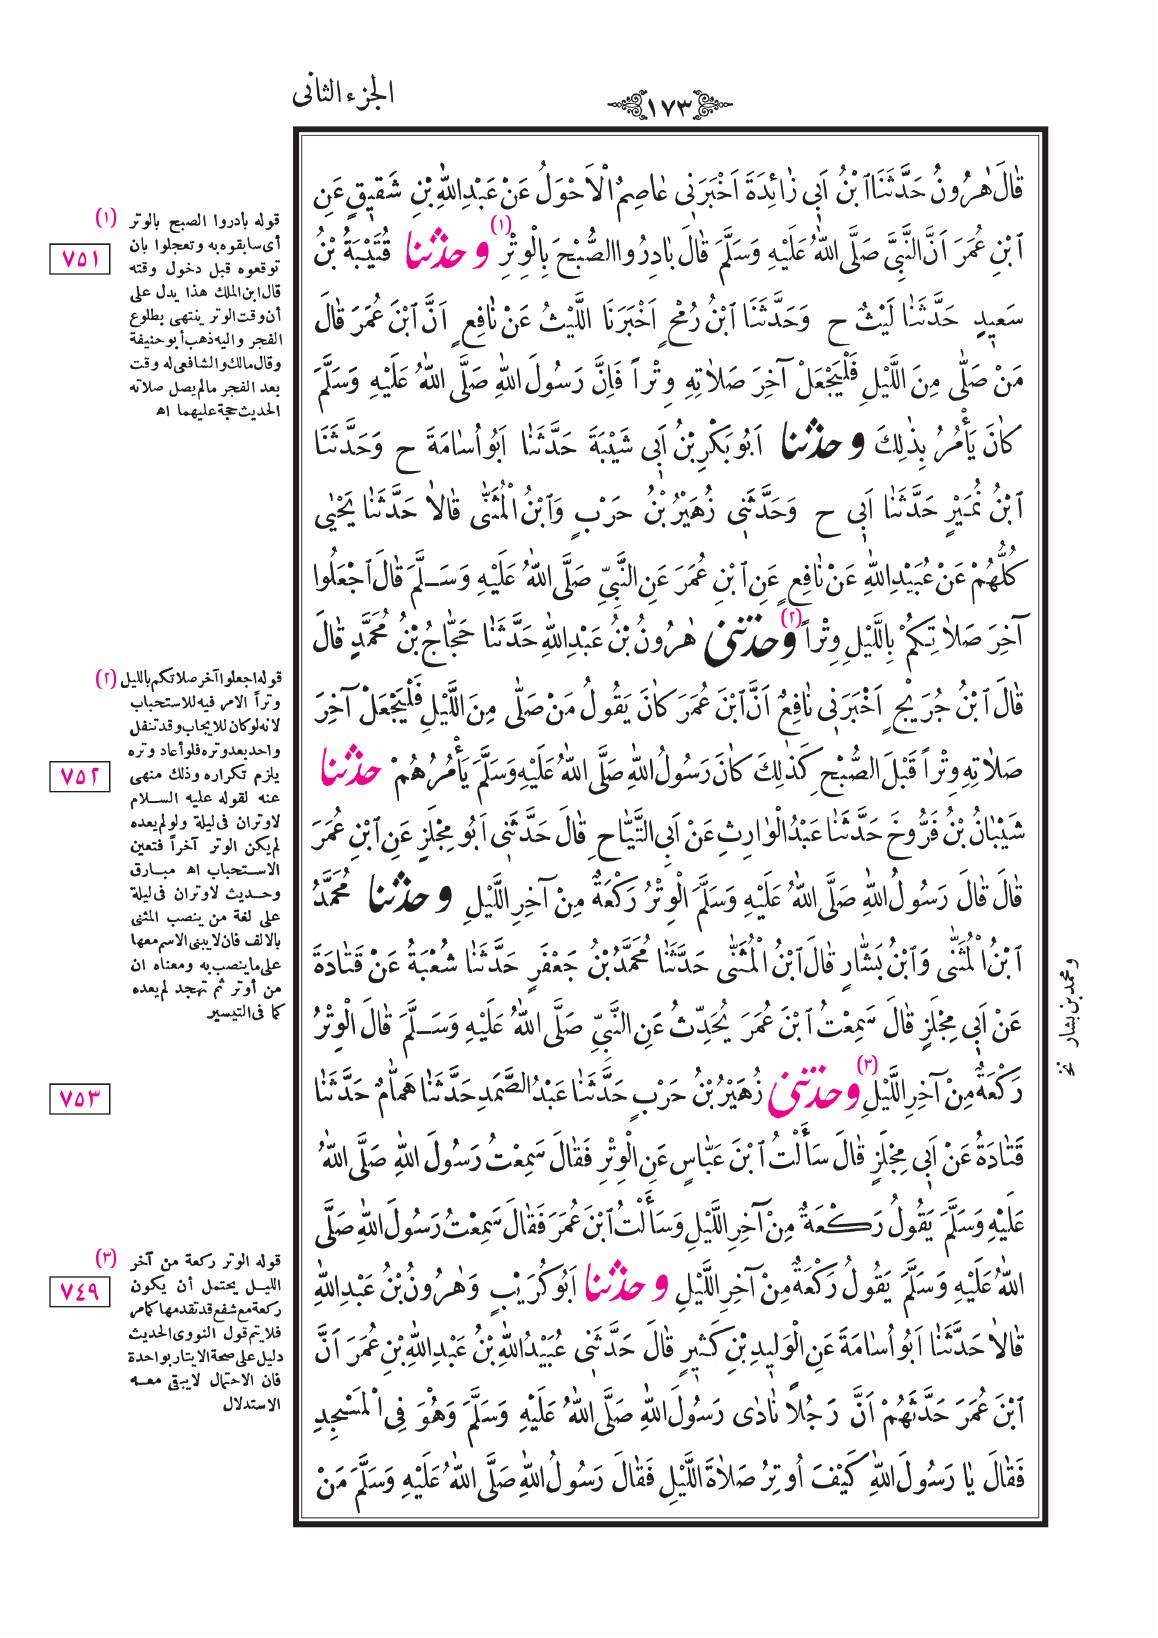 الجزء الثانى
١٧٣
قَالَ هٰرُونُ حَدَّثَنَا ابْنُ اَبِى زَائِدَةَ اَخْبَرَنِى عَاصِمٌ الْاَحْوَلُ عَنْ عَبْدِاللّٰهِ بْنِ شَقِيقٍ عَنِ
ابْنِ عُمَرَ اَنَّ النَّبِىَّ صَلَّى اللّٰهُ عَلَيْهِ وَسَلَّمَ قَالَ بَادِرُوا الصُّبْحَ بِالْوِتْرِ (١) وحدثنا قُتَيْبَةُ بْنُ
سَعِيدٍ حَدَّثَنَا لَيْثٌ ح وَحَدَّثَنَا ابْنُ رُمْحٍ اَخْبَرَنَا اللَّيْثُ عَنْ نَافِعٍ اَنَّ ابْنَ عُمَرَ قَالَ
مَنْ صَلَّى مِنَ اللَّيْلِ فَلْيَجْعَلْ آخِرَ صَلَاتِهِ وِتْراً فَاِنَّ رَسُولَ اللّٰهِ صَلَّى اللّٰهُ عَلَيْهِ وَسَلَّمَ
كَانَ يَأْمُرُ بِذٰلِكَ وحدثنا اَبُو بَكْرِ بْنُ اَبِى شَيْبَةَ حَدَّثَنَا اَبُو اُسَامَةَ ح وَحَدَّثَنَا
ابْنُ نُمَيْرٍ حَدَّثَنَا اَبِى ح وَحَدَّثَنِى زُهَيْرُ بْنُ حَرْبٍ وَابْنُ الْمُثَنَّى قَالَا حَدَّثَنَا يَحْيٰى
كُلُّهُمْ عَنْ عُبَيْدِ اللّٰهِ عَنْ نَافِعٍ عَنِ ابْنِ عُمَرَ عَنِ النَّبِىِّ صَلَّى اللّٰهُ عَلَيْهِ وَسَلَّمَ قَالَ اجْعَلُوا
آخِرَ صَلَاتِكُمْ بِاللَّيْلِ وِتْراً (٢) وحدثنى هٰرُونُ بْنُ عَبْدِاللّٰهِ حَدَّثَنَا حَجَّاجُ بْنُ مُحَمَّدٍ قَالَ
قَالَ ابْنُ جُرَيْجٍ اَخْبَرَنِى نَافِعٌ اَنَّ ابْنَ عُمَرَ كَانَ يَقُولُ مَنْ صَلَّى مِنَ اللَّيْلِ فَلْيَجْعَلْ آخِرَ
صَلَاتِهِ وِتْراً قَبْلَ الصُّبْحِ كَذٰلِكَ كَانَ رَسُولُ اللّٰهِ صَلَّى اللّٰهُ عَلَيْهِ وَسَلَّمَ يَأْمُرُهُمْ حدثنا
شَيْبَانُ بْنُ فَرُّوخَ حَدَّثَنَا عَبْدُ الْوَارِثِ عَنْ اَبِى التَّيَّاحِ قَالَ حَدَّثَنِى اَبُو مِجْلَزٍ عَنِ ابْنِ عُمَرَ
قَالَ قَالَ رَسُولُ اللّٰهِ صَلَّى اللّٰهُ عَلَيْهِ وَسَلَّمَ الْوِتْرُ رَكْعَةٌ مِنْ آخِرِ اللَّيْلِ وحدثنا مُحَمَّدُ
ابْنُ الْمُثَنَّى وَابْنُ بَشَّارٍ قَالَ ابْنُ الْمُثَنَّى حَدَّثَنَا مُحَمَّدُ بْنُ جَعْفَرٍ حَدَّثَنَا شُعْبَةُ عَنْ قَتَادَةَ
عَنْ اَبِى مِجْلَزٍ قَالَ سَمِعْتُ ابْنَ عُمَرَ يُحَدِّثُ عَنِ النَّبِىِّ صَلَّى اللّٰهُ عَلَيْهِ وَسَلَّمَ قَالَ الْوِتْرُ
رَكْعَةٌ مِنْ آخِرِ اللَّيْلِ (٣) وحدثنى زُهَيْرُ بْنُ حَرْبٍ حَدَّثَنَا عَبْدُ الصَّمَدِ حَدَّثَنَا هَمَّامٌ حَدَّثَنَا
قَتَادَةُ عَنْ اَبِى مِجْلَزٍ قَالَ سَأَلْتُ ابْنَ عَبَّاسٍ عَنِ الْوِتْرِ فَقَالَ سَمِعْتُ رَسُولَ اللّٰهِ صَلَّى اللّٰهُ
عَلَيْهِ وَسَلَّمَ يَقُولُ رَكْعَةٌ مِنْ آخِرِ اللَّيْلِ وَسَأَلْتُ ابْنَ عُمَرَ فَقَالَ سَمِعْتُ رَسُولَ اللّٰهِ صَلَّى
اللّٰهُ عَلَيْهِ وَسَلَّمَ يَقُولُ رَكْعَةٌ مِنْ آخِرِ اللَّيْلِ وحدثنا اَبُو كُرَيْبٍ وَهٰرُونُ بْنُ عَبْدِ اللّٰهِ
قَالَا حَدَّثَنَا اَبُو اُسَامَةَ عَنِ الْوَلِيدِ بْنِ كَثِيرٍ قَالَ حَدَّثَنِى عُبَيْدُ اللّٰهِ بْنُ عَبْدِ اللّٰهِ بْنِ عُمَرَ اَنَّ
ابْنَ عُمَرَ حَدَّثَهُمْ اَنَّ رَجُلاً نَادَى رَسُولَ اللّٰهِ صَلَّى اللّٰهُ عَلَيْهِ وَسَلَّمَ وَهُوَ فِى الْمَسْجِدِ
فَقَالَ يَا رَسُولَ اللّٰهِ كَيْفَ اُوتِرُ صَلَاةَ اللَّيْلِ فَقَالَ رَسُولُ اللّٰهِ صَلَّى اللّٰهُ عَلَيْهِ وَسَلَّمَ مَنْ
ومحمد بن بشار نخ
(١) قوله بادروا الصبح بالوتر
أى سابقوه به وتعجلوا بان
توقعوه قبل دخول وقته
قال ابن الملك هذا يدل على
أن وقت الوتر ينتهى بطلوع
الفجر واليه ذهب أبو حنيفة
وقال مالك والشافعى له وقت
بعد الفجر مالم يصل صلاته
الحديث حجة عليهما اه
٧٥١
(٢) قوله اجعلوا آخر صلاتكم بالليل
وتراً الامر فيه للاستحباب
لانه لو كان للايجاب وقد تنفل
واحد بعد وتره فلو أعاد وتره
يلزم تكراره وذلك منهى
عنه لقوله عليه السلام
لاوتران فى ليلة ولو لم يعده
لم يكن الوتر آخراً فتعين
الاستحباب اه مبارق
وحديث لاوتران فى ليلة
على لغة من ينصب المثنى
بالالف فان لا يبنى الاسم معها
على ما ينصب به ومعناه ان
من أوتر ثم تهجد لم يعده
كما فى التيسير
٧٥٢
٧٥٣
(٣) قوله الوتر ركعة من آخر
الليل يحتمل أن يكون
ركعة مع شفع قد تقدمها كما مر
فلا يتم قول النووى الحديث
دليل على صحة الايتار بواحدة
فان الاحتمال لايبقى معه
الاستدلال
٧٤٩